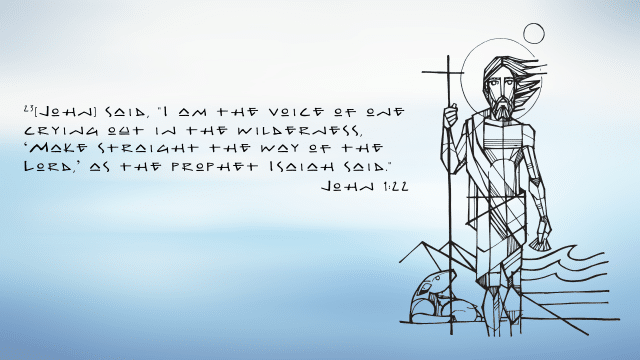 ²³[John] said, "I am the voice of one
crying out in the wilderness,
‘Make straight the way of the
Lord,’ as the prophet Isaiah said."
John 1:22